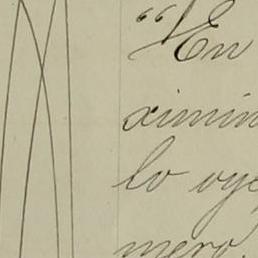 "En
ximin
lo oye
mero.